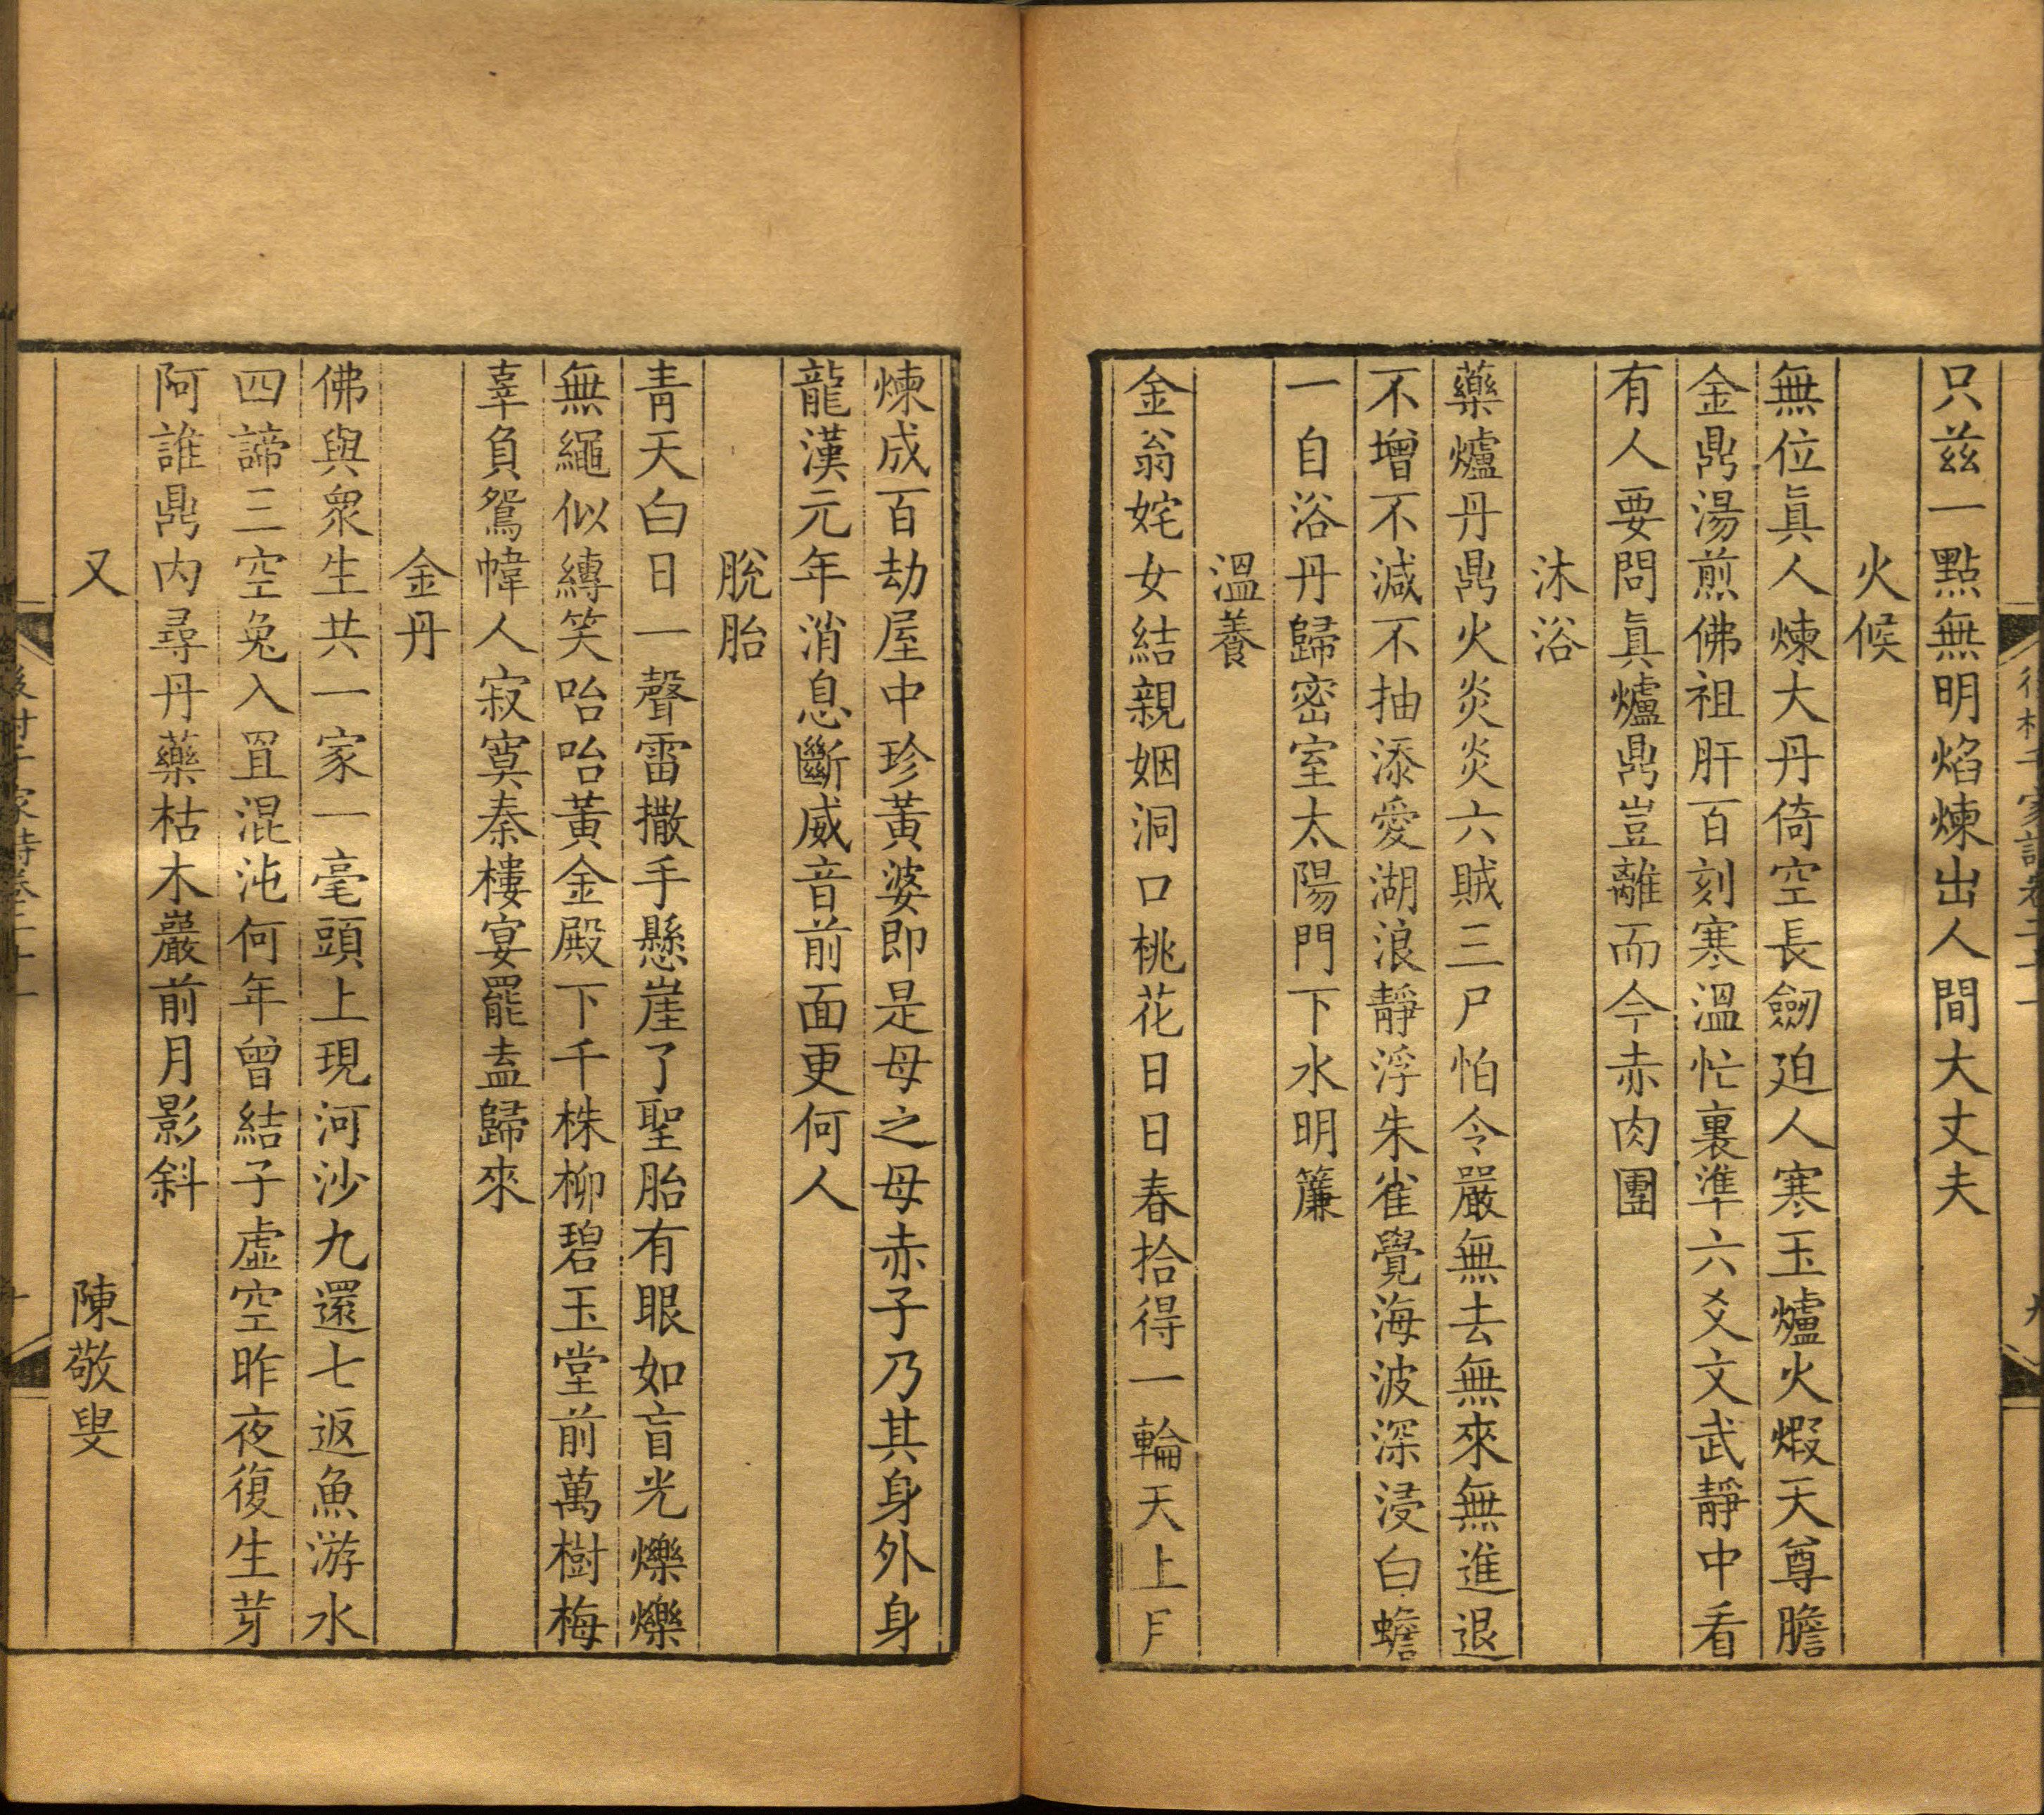 只兹一點無明焰煉出人間大丈夫
火候
無位眞人煉大丹倚空長劒廹人寒玉爐火煆天尊膽
金鼎湯煎佛祖肝百刻寒溫忙裏準六爻文武靜中看
有人要問眞爐鼎豈離而今赤肉團
沐浴
藥爐丹鼎火炎炎六賊三尸怕令嚴無去無來無進退
不增不減不抽添愛湖浪靜浮朱雀覺海波深浸白蟾
一自浴丹歸密室太陽門下水明簾
溫養
金翁姹女結親姻洞口桃花日日春拾得一輪天上月
煉成百劫屋中珍黃婆即是母之母赤子乃其身外身
龍漢元年消息斷威音前面更何人
脫胎
青天白日一聲雷撒手懸崖了聖胎有眼如盲光爍爍
無繩似縳笑咍咍黃金殿下千株柳碧玉堂前萬樹梅
辜負鴛幃人寂寞秦樓宴罷盍歸來
金丹
佛與衆生共一家一毫頭上現河沙九還七返魚游水
四諦三空兔入罝混沌何年曾結子虛空昨夜復生芽
阿誰鼎內尋丹藥枯木巖前月影斜
又 陳敬叟